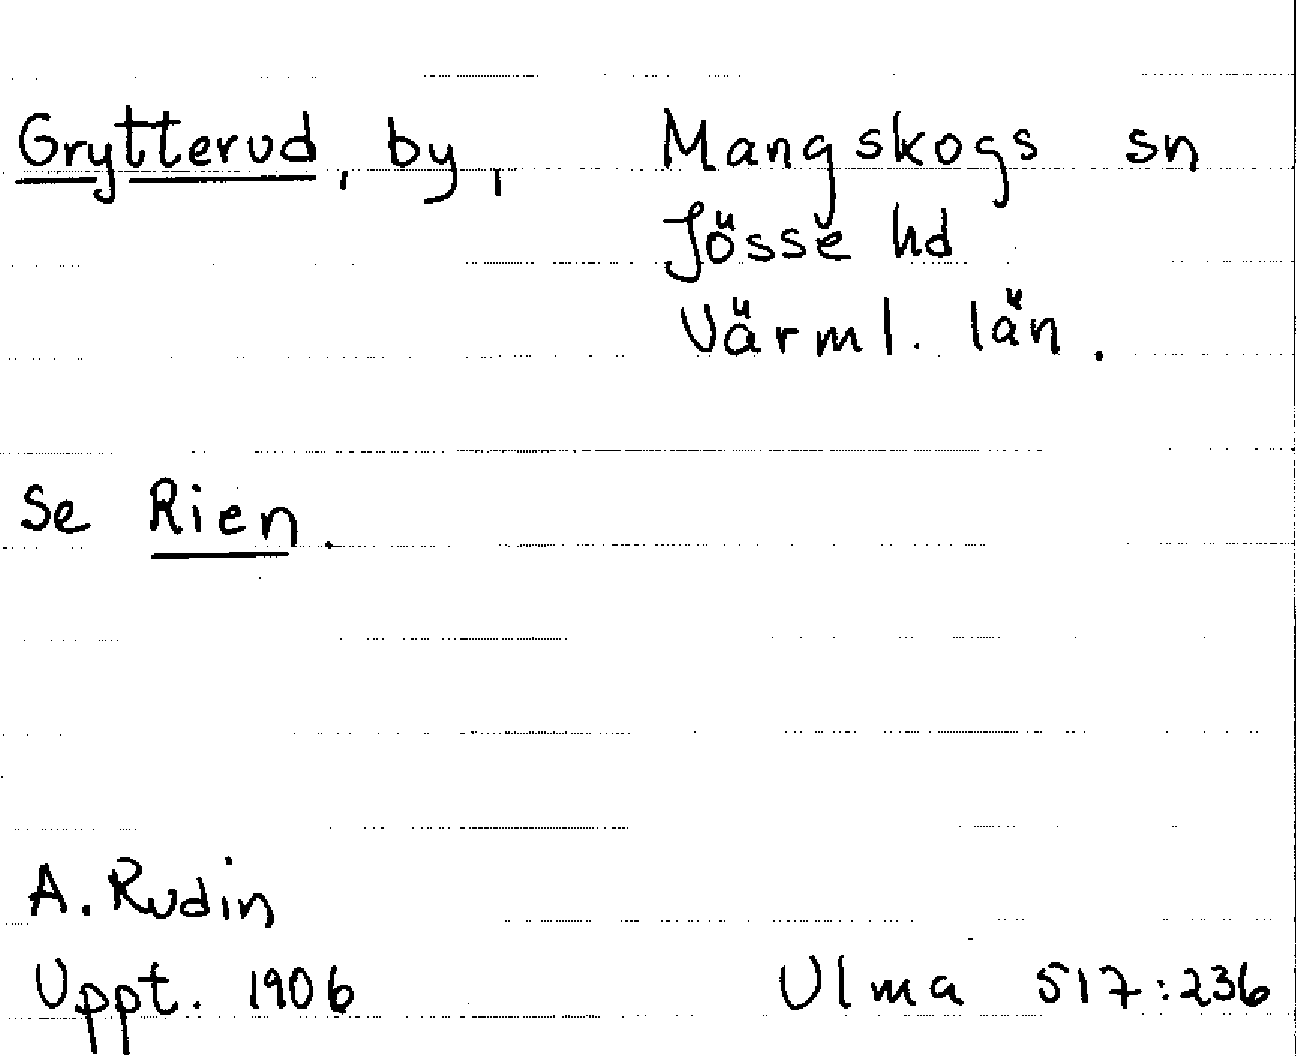 Grytterud, by, Mangskogs sn
Jösse hd
Värml. län.
Se Rien.
A. Rudin
Uppt. 1906 Ulma 517:236